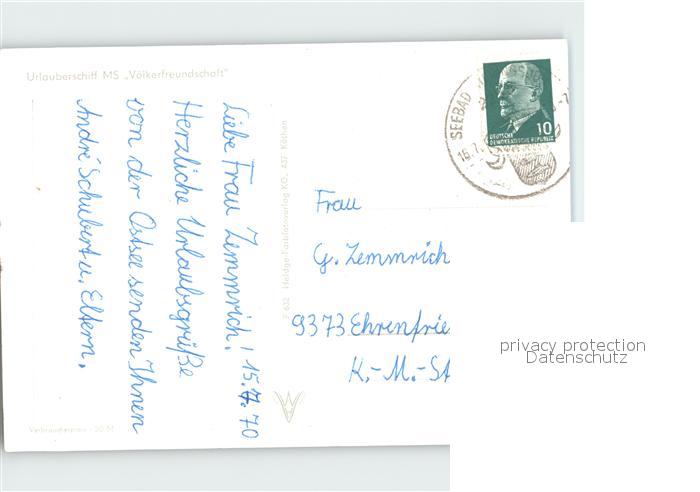 Urlauberschiff MS „Völkerfreundschaft"
Liebe Frau Zemmrich! 15.7.70
Herzliche Urlaubsgrüße
von der Ostsee senden Ihnen
André Schubert u. Eltern.
F 632 Heldge-Farbfotoverlag KG, 437 Köthen
Verbraucherpreis -,20 M
SEEBAD
16.7.
10
DEUTSCHE
DEMOKRATISCHE REPUBLIK
Frau
G. Zemmrich
9373 Ehrenfrie
K.-M.-St
privacy protection
Datenschutz